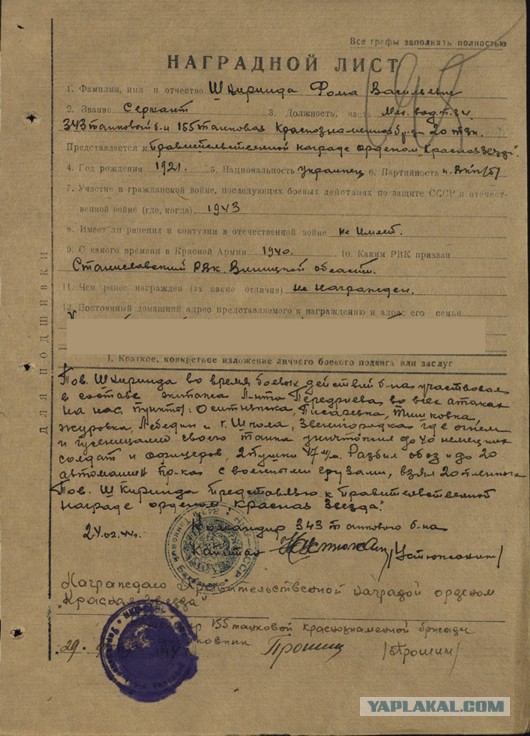 Все графы заполнять полностью
НАГРАДНОЙ ЛИСТ
1. Фамилия, имя и отчество Шкиринда Фома Васильевич
2. Звание Сержант 3. Должность, часть Мех. вод. т-34
343 танковой б-н 155 танковая Краснознаменная бр-да 20 тзк.
Представляется к Правительственной награде орденом Красная Звезда
4. Год рождения 1921. 5. Национальность Украинец 6. Партийность ВКП(б)
7. Участие в гражданской войне, последующих боевых действиях по защите СССР и отечест-
венной войне (где, когда) 1943
8. Имеет ли ранения и контузии в отечественной войне не имеет.
9. С какого времени в Красной Армии 1940. 10. Каким РВК призван
Станиславский РВК. Винницкой области.
11. Чем ранее награжден (за какие отличия) не награжден.
12. Постоянный домашний адрес представляемого к награждению и адрес его семьи
ДЛЯ ПОДШИВКИ
I. Краткое, конкретное изложение личного боевого подвига или заслуг
Тов. Шкиринда во время боевых действий б-на участвовал
в составе экипажа Л-та Передриева во всех атаках
на нас. пункты: Оситняжка, Писаревка, Тишковка,
Журовка, Лебедин и г. Шпола, Звенигородка где огнем
и гусеницами своего танка уничтожил до 40 немецких
солдат и офицеров, 2 пушки м/м. Разбил обоз и до 20
автомашин пр-ка с военными грузами, взял 20 пленных
Тов. Шкиринда представляю к правительственной
награде орденом "Красная Звезда".
24.02.44г. Командир 343 танкового б-на
Капитан
Награждаю Правительственной наградой орденом
"Красная Звезда"
155 танковой краснознаменной бригады
29 Прошин /Прошин/
YAPLAKAL.COM